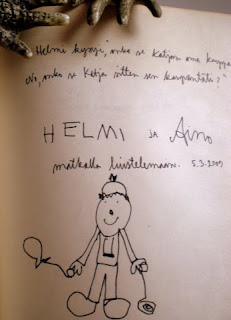 "Helmi kysyi, onko se Katjan oma kauppa.
No, onko se Katja sitten sen karpentäti?"
HELMI ja Aino
matkalla luistelemaan. 5.3.2009